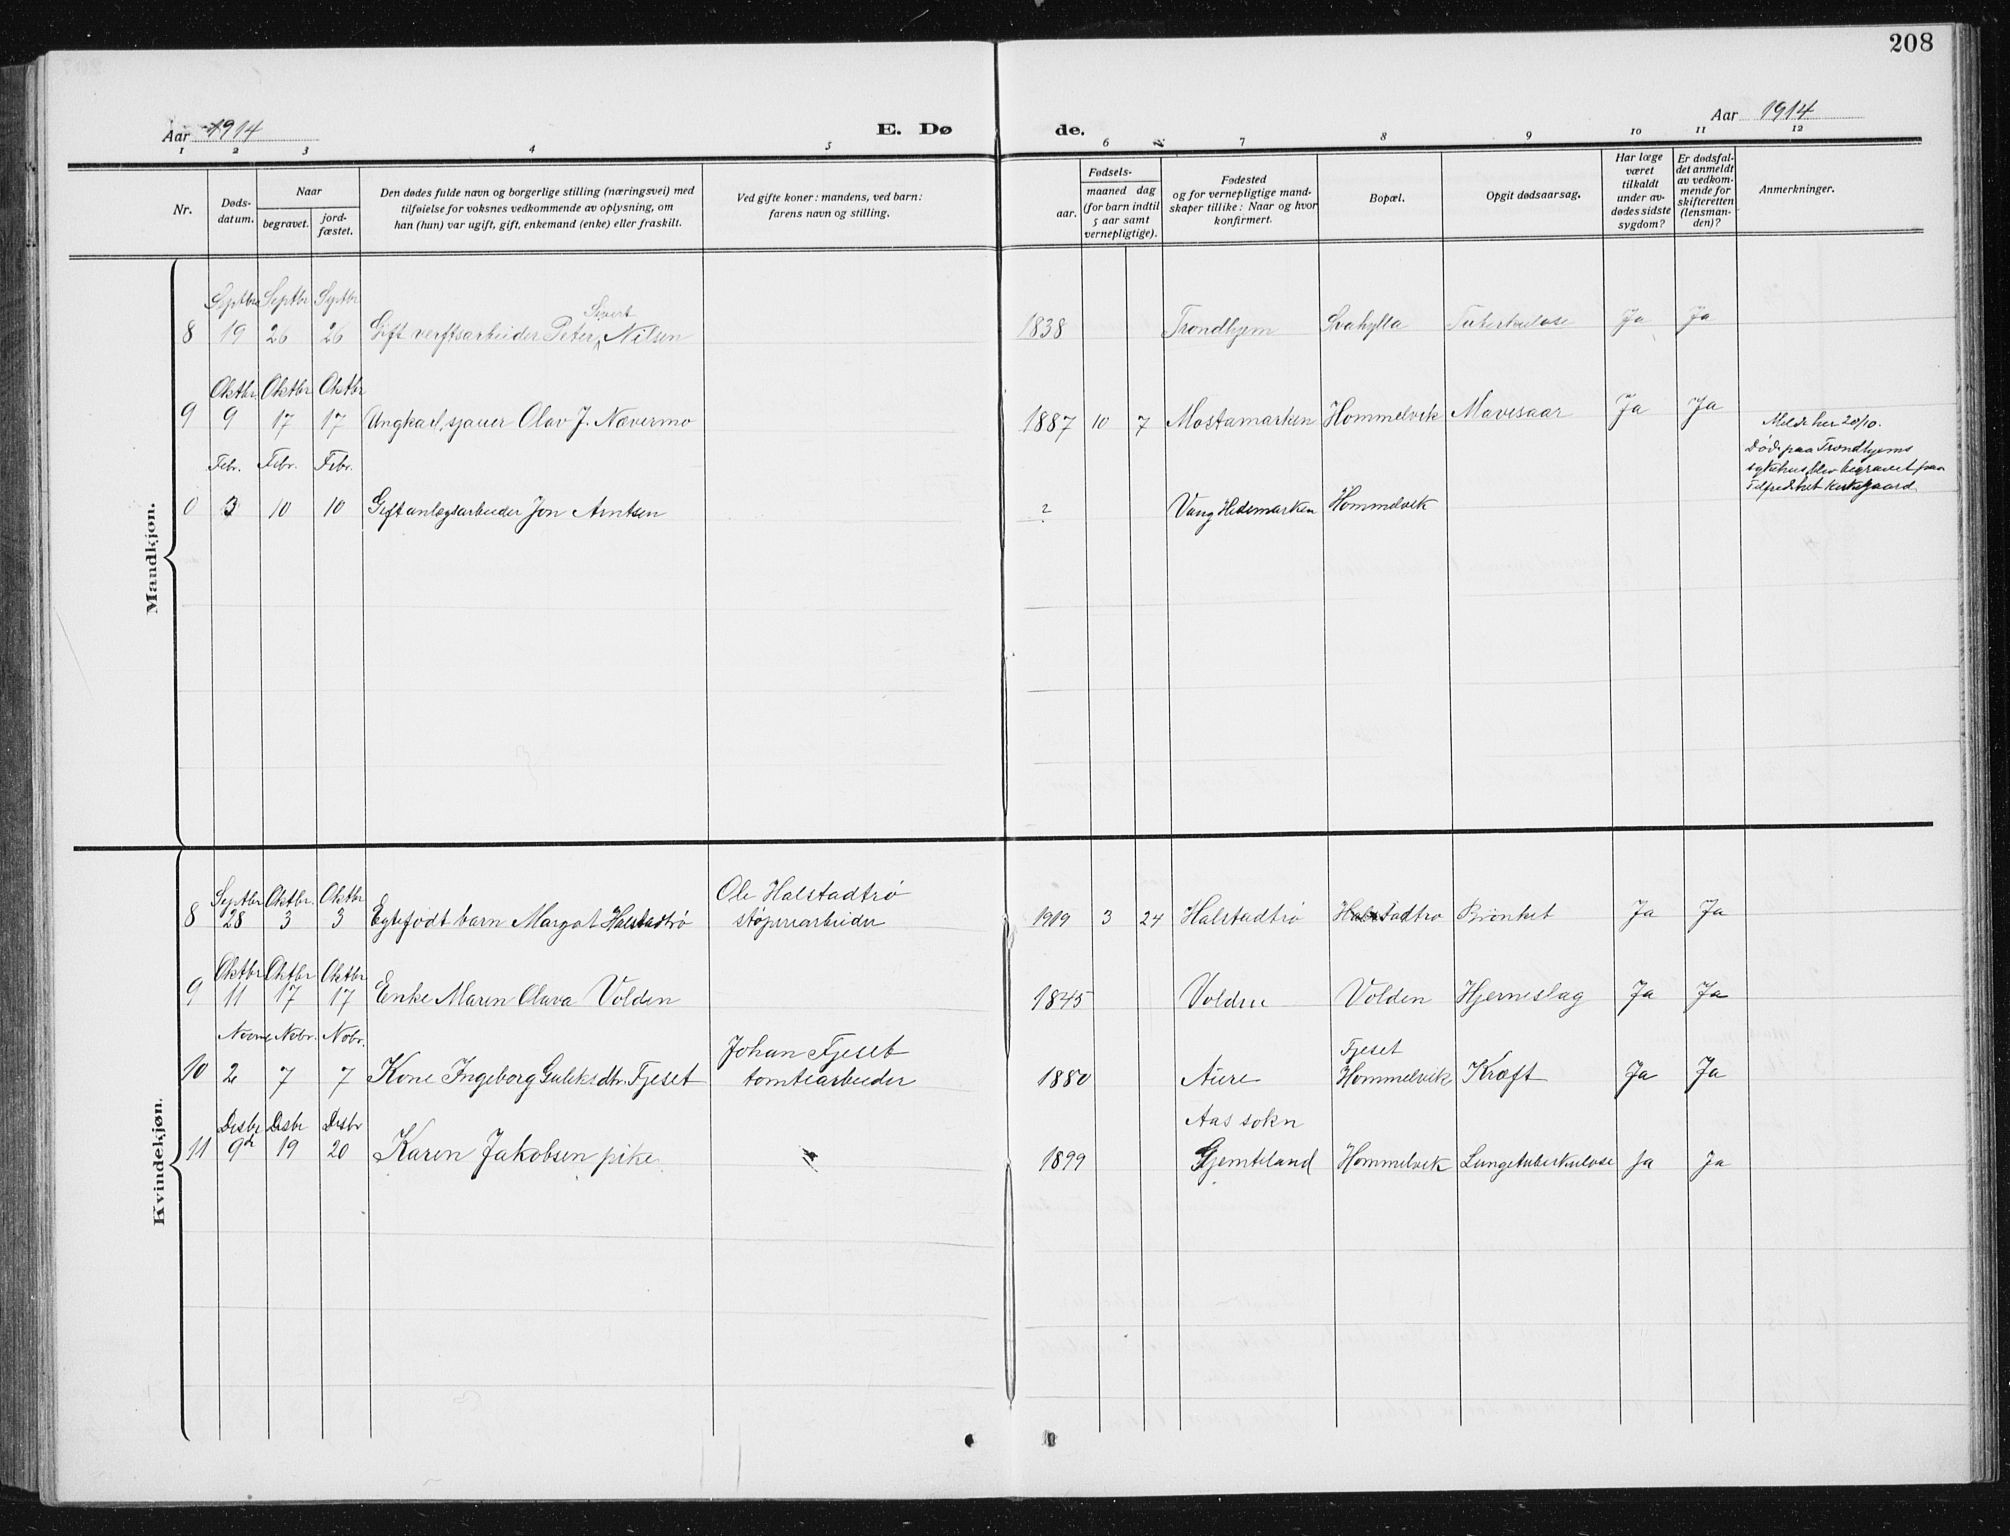 208
Aar 1914
E. Dø
de.
Aar 1914
1 2 3 4 5 6 7 8 9 10 11 12
Nr.
Døds-
datum.
Naar
begravet.
jord-
fæstet.
Den dødes fulde navn og borgerlige stilling (næringsvei) med
tilføielse for voksnes vedkommende av oplysning, om
han (hun) var ugift, gift, enkemand (enke) eller fraskilt.
Ved gifte koner: mandens, ved barn:
farens navn og stilling.
Fødsels-
aar.
maaned dag
(for barn indtil
5 aar samt
vernepligtige).
Fødested
og for vernepligtige mand-
skaper tillike: Naar og hvor
konfirmert.
Bopæl.
Opgit dødsaarsag.
Har læge
været
tilkaldt
under av-
dødes sidste
sygdom?
Er dødsfal-
det anmeldt
av vedkom-
mende for
skifteretten
(lensman-
den)?
Anmerkninger.
Mandkjøn.
Septbr Septbr Septbr
Sivert
8 19 26 26 Gift verftsarbeider Peter Nilsen 1838 Trondhjem Svahylla Tuberkulose Ja Ja
Oktbr. Oktbr Oktbr
9 9 17 17 Ungkarl, sjauer Olav J. Nævermo 1887 10 7 Mostamarken Hommelvik Mavesaar Ja Ja
Febr. Febr. Febr.
0 3 10 10 Gift anlægsarbeider Jon Arntsen ? Vang Hedemarken Hommelvik
Meldt her 20/10.
Død paa Trondhjems
sykehus, blev begravet paa
Tilfredshet Kirkegaard
Kvindekjøn.
Septbr Oktbr. Oktbr
Ole Halstadtrø
8 28 3 3 Egtefødt barn Margot Halstadtrø støperiarbeider 1909 3 24 Halstadtrø Halstadtrø Bronket Ja Ja
Oktbr Oktbr Oktbr
9 11 17 17 Enke Maren Olava Volden 1845 Volden Volden Hjerneslag Ja Ja
Novbr. Nobr.
Johan Fjeset
Fjeset
10 2 7 7 Kone Ingeborg Fjeset tomtearbeider 1880 Aure Hommelvik Kræft Ja Ja
Desbr Desbr Desbr
Aas sokn
11 9de 19 20 Karen Jakobsen pike 1899 Gjemteland Hommelvik Lungetuberkulose Ja Ja